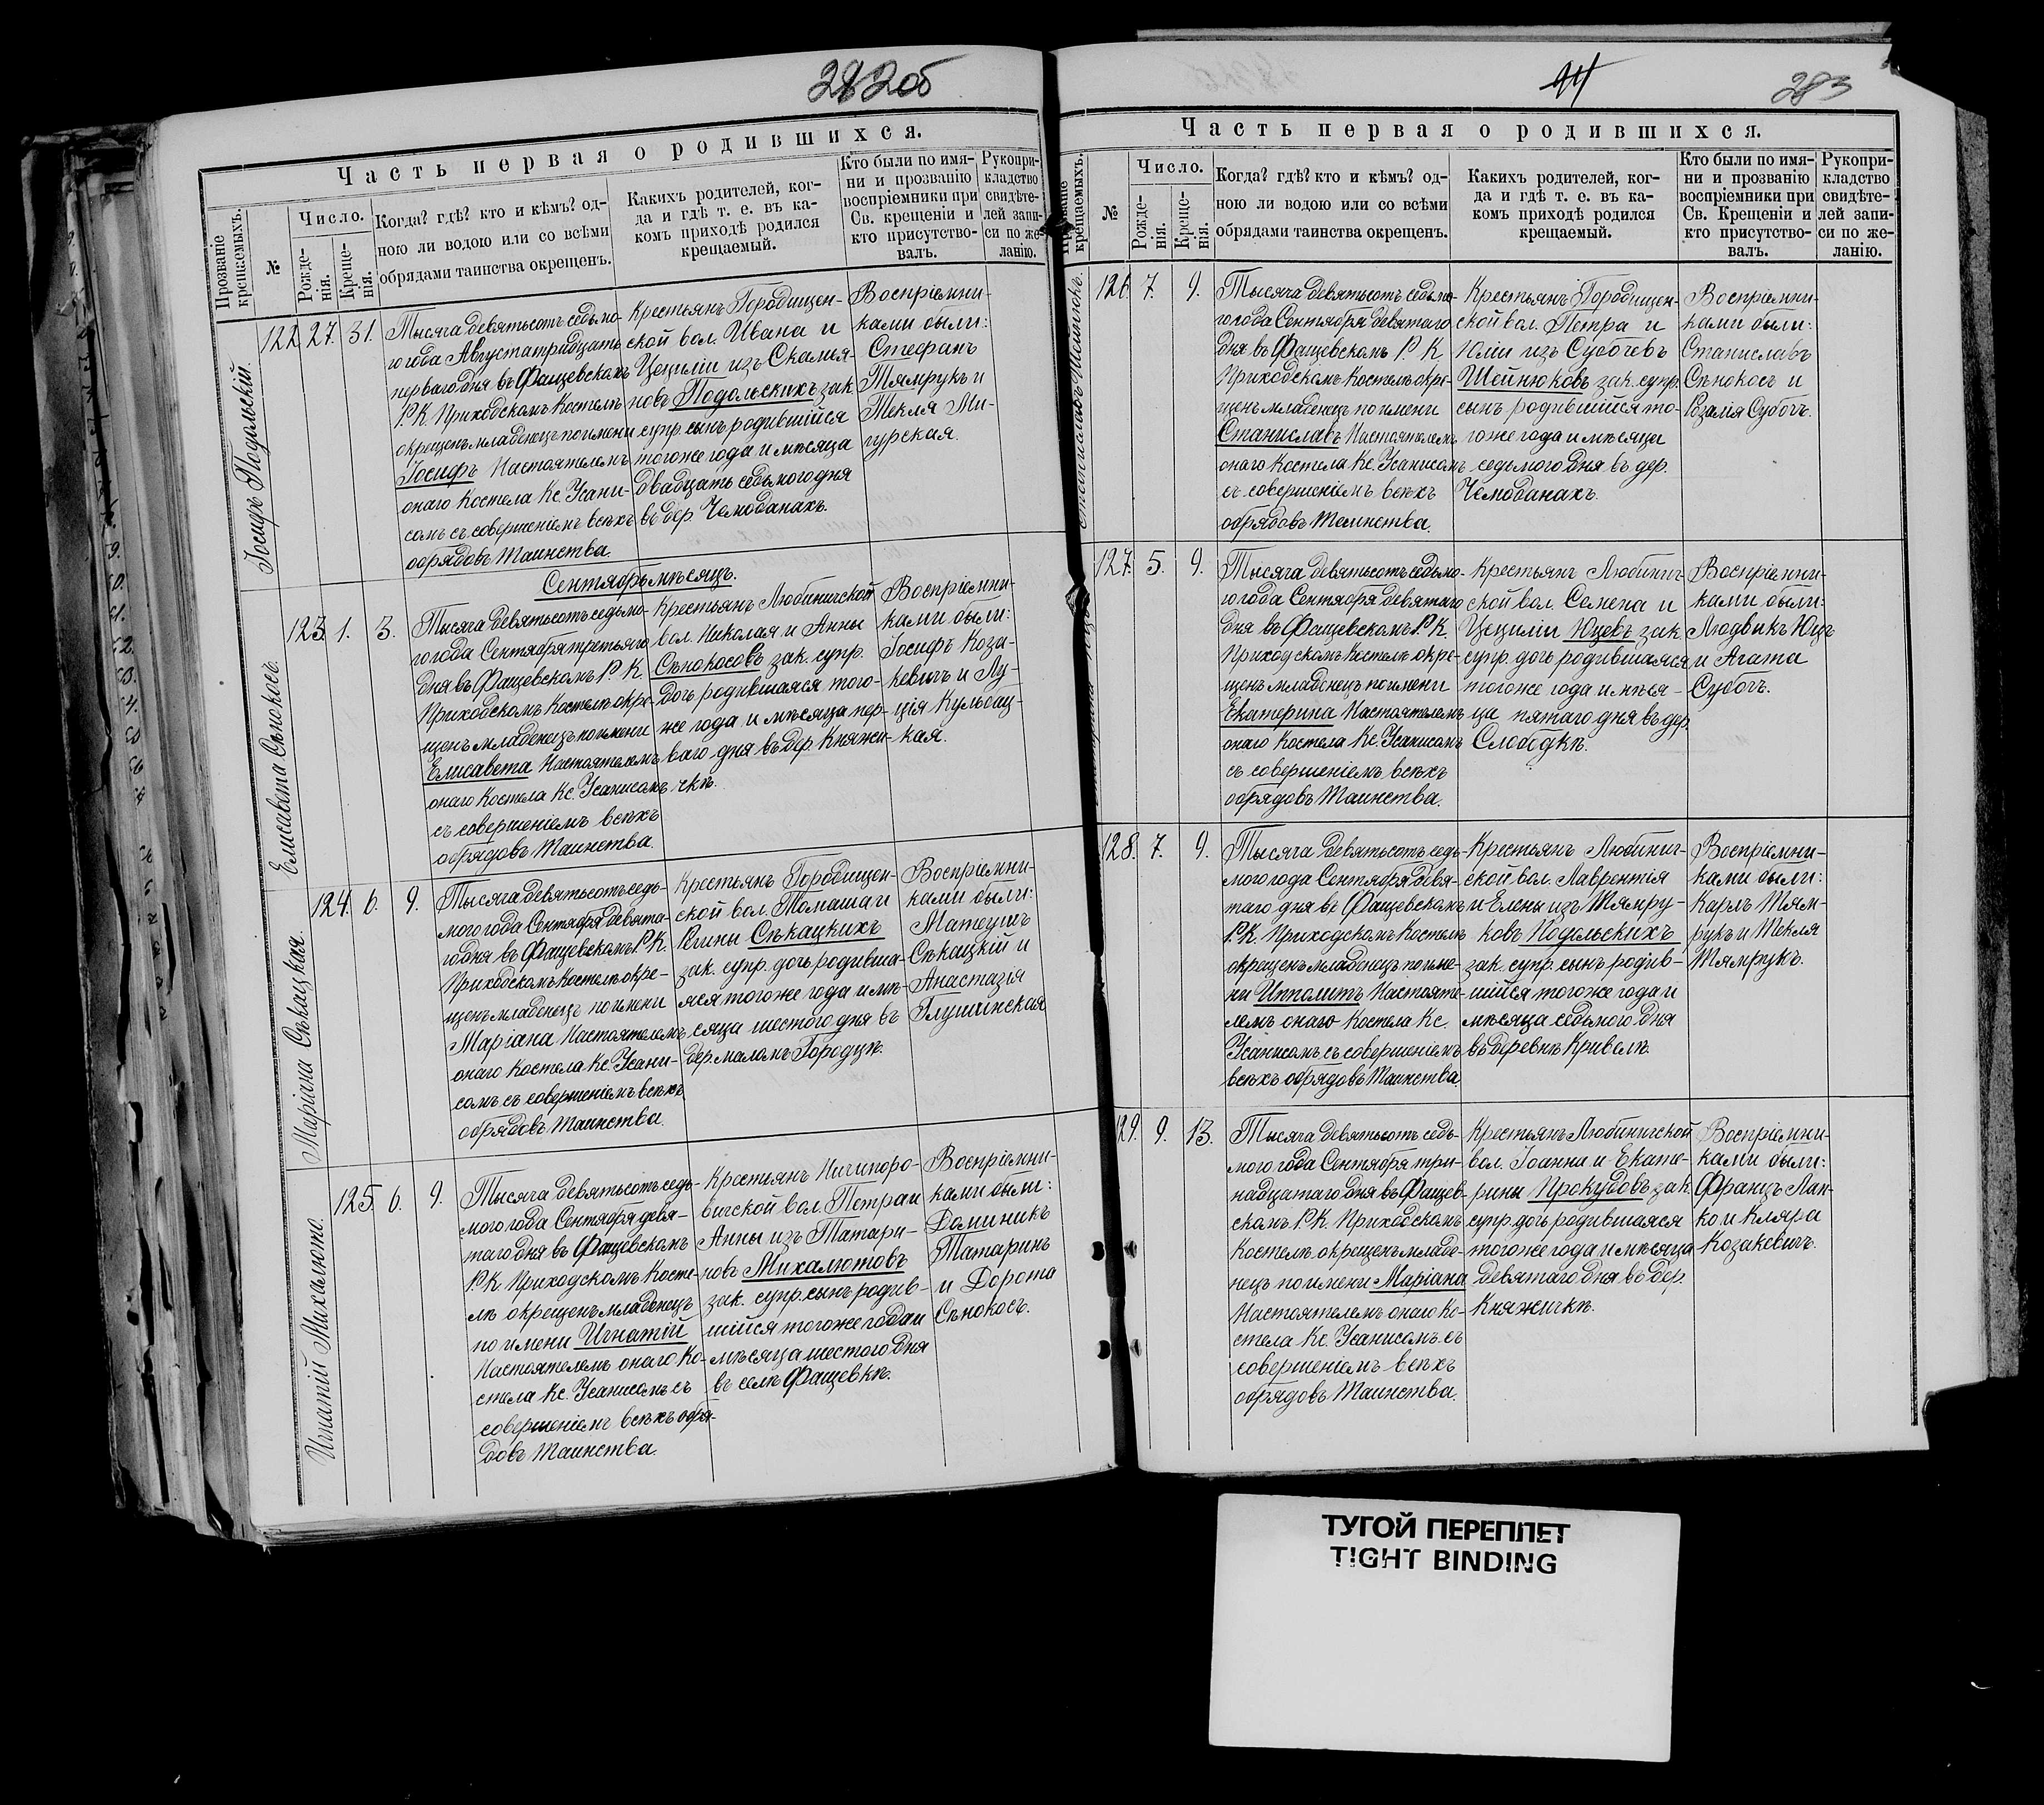 282об
Часть первая о родившихся.
Прозваніе крещаемыхъ.
№
Число.
Рожде-
нія.
Креще-
нія.
Когда? гдѣ? кто и кѣмъ? од-
ною ли водою или со всѣми
обрядами таинства окрещенъ.
Какихъ родителей, ког-
да и гдѣ т. е. въ ка-
комъ приходѣ родился
крещаемый.
Кто были по имя-
ни и прозванію
воспріемники при
Св. крещеніи и
кто присутство-
валъ.
Рукопри-
кладство
свидѣте-
лей запи-
си по же-
ланію.
Іосифъ Подольскій.
122. 27. 31.
Тысяча девятьсотъ седьмо-
го года Августа тридцать
перваго дня въ Фащевскомъ
Р. К. Приходскомъ Костелѣ
окрещенъ младенецъ по имени
Іосифъ Настоятелемъ
онаго Костела Кс. Усани-
сомъ съ совершеніемъ всѣхъ
обрядовъ Таинства.
Крестьянъ Городищен-
ской вол. Ивана и
Цециліи изъ Скамья-
новъ Подольскихъ зак.
супр. сынъ родившійся
тогоже года и мѣсяца
двадцать седьмого дня
въ дер. Чемоданахъ.
Воспріемни-
ками были:
Стефанъ
Тямрукъ и
Текля Ми-
гурская.
Сентябрь мѣсяцъ.
Елисавета Сѣнокосъ.
123. 1. 3.
Тысяча девятьсотъ седьмо-
го года Сентября третьяго
дня въ Фащевскомъ Р. К.
Приходскомъ Костелѣ окре-
щенъ младенецъ по имени
Елисавета Настоятелемъ
онаго Костела Кс. Усанисомъ
съ совершеніемъ всѣхъ
обрядовъ Таинства.
Крестьянъ Любиничской
вол. Николая и Анны
Сѣнокосовъ зак. супр.
дочь родившаяся того-
же года и мѣсяца пер-
ваго дня въ дер. Княжи-
чкѣ.
Воспріемни-
ками были:
Іосифъ Коза-
кевичъ и Лу-
ція Кульсац-
кая.
Маріана Сѣкацкая.
124. 6. 9.
Тысяча девятьсотъ седь-
мого года Сентября девята-
го дня въ Фащевскомъ Р. К.
Приходскомъ Костелѣ окре-
щенъ младенецъ по имени
Маріана Настоятелемъ
онаго Костела Кс. Усани-
сомъ съ совершеніемъ всѣхъ
обрядовъ Таинства.
Крестьянъ Городищен-
ской вол. Томаша и
Регини Сѣкацкихъ
зак. супр. дочь родивша-
яся тогоже года и мѣ-
сяца шестого дня въ
дер. маломъ Городцѣ.
Воспріемни-
ками были:
Матеушъ
Сѣкацкій и
Анастазія
Глушинская
Игнатій Михалютовъ.
125. 6. 9.
Тысяча девятьсотъ седь-
мого года Сентября девя-
таго дня въ Фащевскомъ
Р. К. Приходскомъ Косте-
лѣ окрещенъ младенецъ
по имени Игнатій
Настоятелемъ онаго Ко-
стела Кс. Усанисомъ съ
совершеніемъ всѣхъ обря-
довъ Таинства.
Крестьянъ Ничипоро-
вичской вол. Петра и
Анны изъ Татари-
новъ Михалютовъ
зак. супр. сынъ родив-
шійся тогоже года и
мѣсяца шестого дня
въ селѣ Фащевкѣ.
Воспріемни-
ками были:
Доминикъ
Татаринъ
и Дорота
Сѣнокосъ.
94
283
Часть первая о родившихся.
крещаемыхъ.
№
Число.
Рожде-
нія.
Креще-
нія.
Когда? гдѣ? кто и кѣмъ? од-
ною ли водою или со всѣми
обрядами таинства окрещенъ.
Какихъ родителей, ког-
да и гдѣ т. е. въ ка-
комъ приходѣ родился
крещаемый.
Кто были по имя-
ни и прозванію
воспріемники при
Св. Крещеніи и
кто присутство-
валъ.
Рукопри-
кладство
свидѣте-
лей запи-
си по же-
ланію.
126. 7. 9.
Тысяча девятьсотъ седьмо-
го года Сентября девятаго
дня въ Фащевскомъ Р. К.
Приходскомъ Костелѣ окре-
щенъ младенецъ по имени
Станиславъ Настоятелемъ
онаго Костела Кс. Усанисомъ
съ совершеніемъ всѣхъ
обрядовъ Таинства.
Крестьянъ Городищен-
ской вол. Петра и
Юліи изъ Суботевъ
Шейнюковъ зак. супр.
сынъ родившійся то-
гоже года и мѣсяца
седьмого дня въ дер.
Чемоданахъ.
Воспріемни-
ками были:
Станиславъ
Сѣнокосъ и
Розалія Суботъ.
127. 5. 9.
Тысяча девятьсотъ седьмо-
го года Сентября девятаго
дня въ Фащевскомъ Р. К.
Приходскомъ Костелѣ окре-
щенъ младенецъ по имени
Екатерина Настоятелемъ
онаго Костела Кс. Усанисомъ
съ совершеніемъ всѣхъ
обрядовъ Таинства.
Крестьянъ Любинич-
ской вол. Семена и
Цециліи Юцевъ зак.
супр. дочь родившаяся
тогоже года и мѣся-
ца пятаго дня въ дер.
Слободкѣ.
Воспріемни-
ками были:
Людвикъ Юцъ
и Агата
Суботъ.
128. 7. 9.
Тысяча девятьсотъ седь-
мого года Сентября девя-
таго дня въ Фащевскомъ
Р. К. Приходскомъ Костелѣ
окрещенъ младенецъ по име-
ни Ипполитъ Настояте-
лемъ онаго Костела Кс.
Усанисомъ съ совершеніемъ
всѣхъ обрядовъ Таинства
Крестьянъ Любинич-
ской вол. Лаврентія
и Елены изъ Тямру-
ковъ Подольскихъ
зак. супр. сынъ родив-
шійся тогоже года и
мѣсяца седьмого дня
въ деревнѣ Кривелѣ.
Воспріемни-
ками были:
Карлъ Тям-
рукъ и Текля
Тямрукъ.
129. 9. 13.
Тысяча девятьсотъ седь-
мого года Сентября три-
надцатаго дня въ Фащев-
скомъ Р. К. Приходскомъ
Костелѣ окрещенъ младе-
нецъ по имени Маріана
Настоятелемъ онаго Ко-
стела Кс. Усанисомъ съ
совершеніемъ всѣхъ
обрядовъ Таинства.
Крестьянъ Любиничской
вол. Іоанна и Екате-
рины Прокудовъ зак.
супр. дочь родившаяся
тогоже года и мѣсяца
девятаго дня въ дер.
Княжичкѣ.
Воспріемни-
ками были:
Францъ Лап-
ко и Кляра
Козакевичъ.
ТУГОЙ ПЕРЕПЛЕТ
TIGHT BINDING